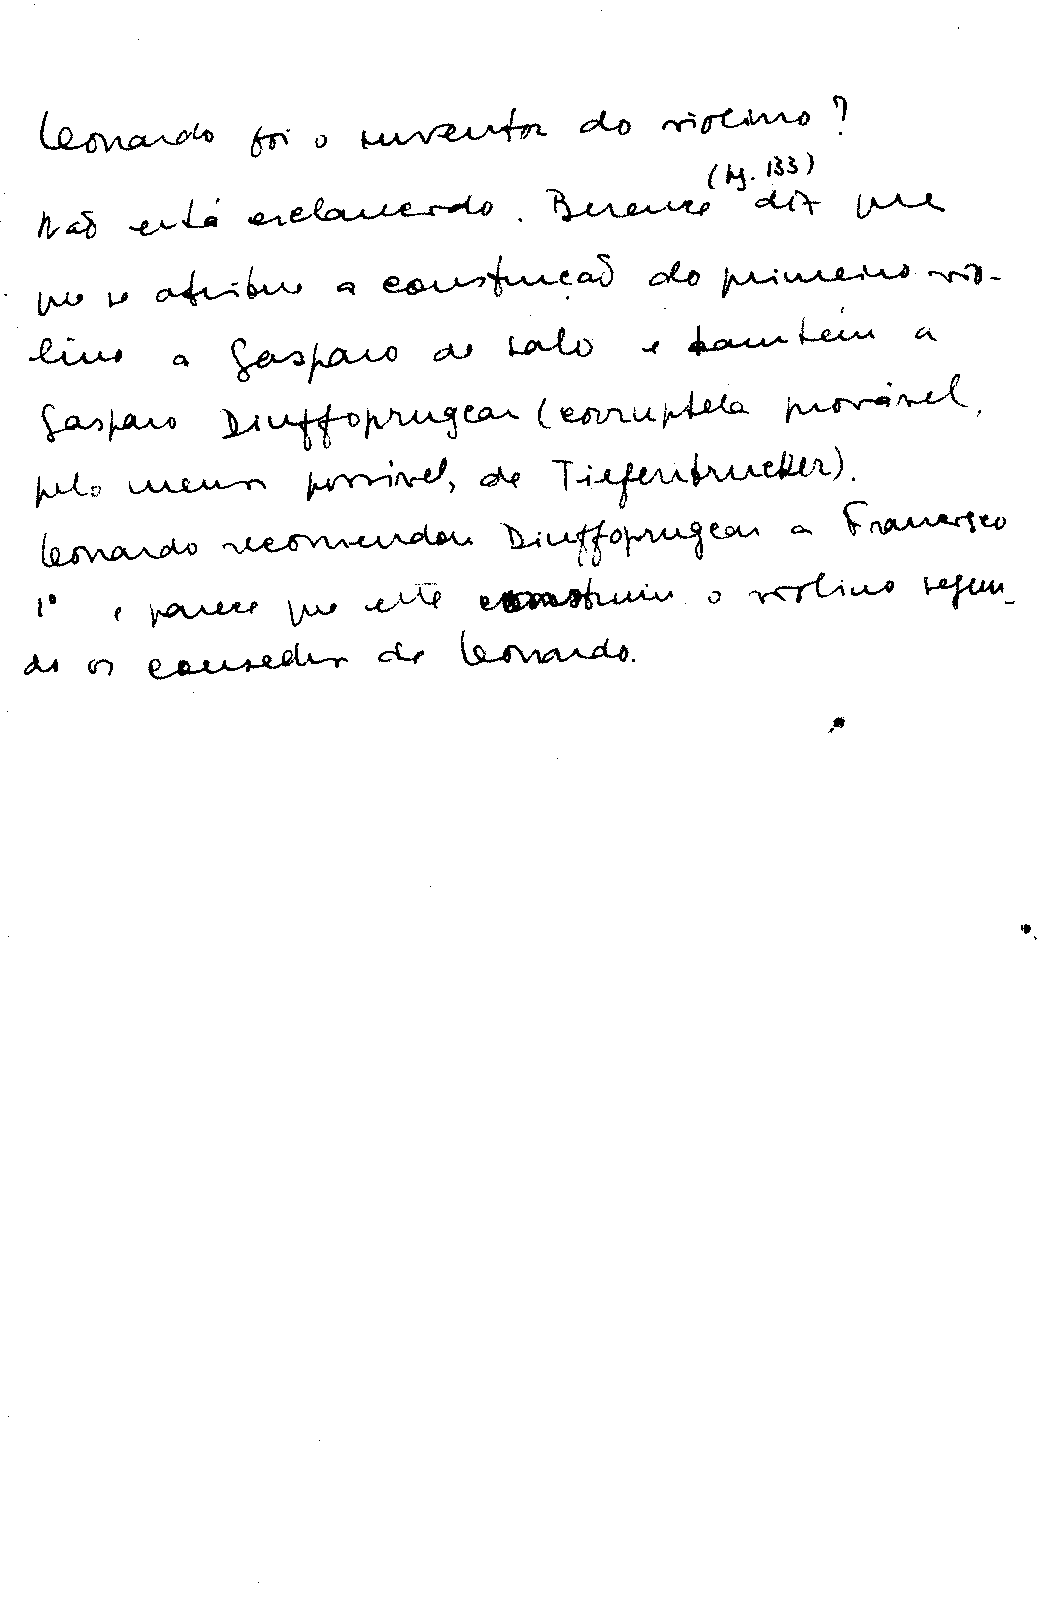 Leonardo foi o inventor do violino?
Não está esclarecido. Berence (pg. 133) diz que
que se atribue a construçaõ do primeiro vio-
lino a Gasparo de Salo e também a
Gasparo Diuffoprugcar (corruptela provável,
pelo menos possível, de Tiefenbrucker).
Leonardo recomendou Diuffoprugcar a Francisco
1º e parece que este construiu o violino segun-
do os conselhos de Leonardo.